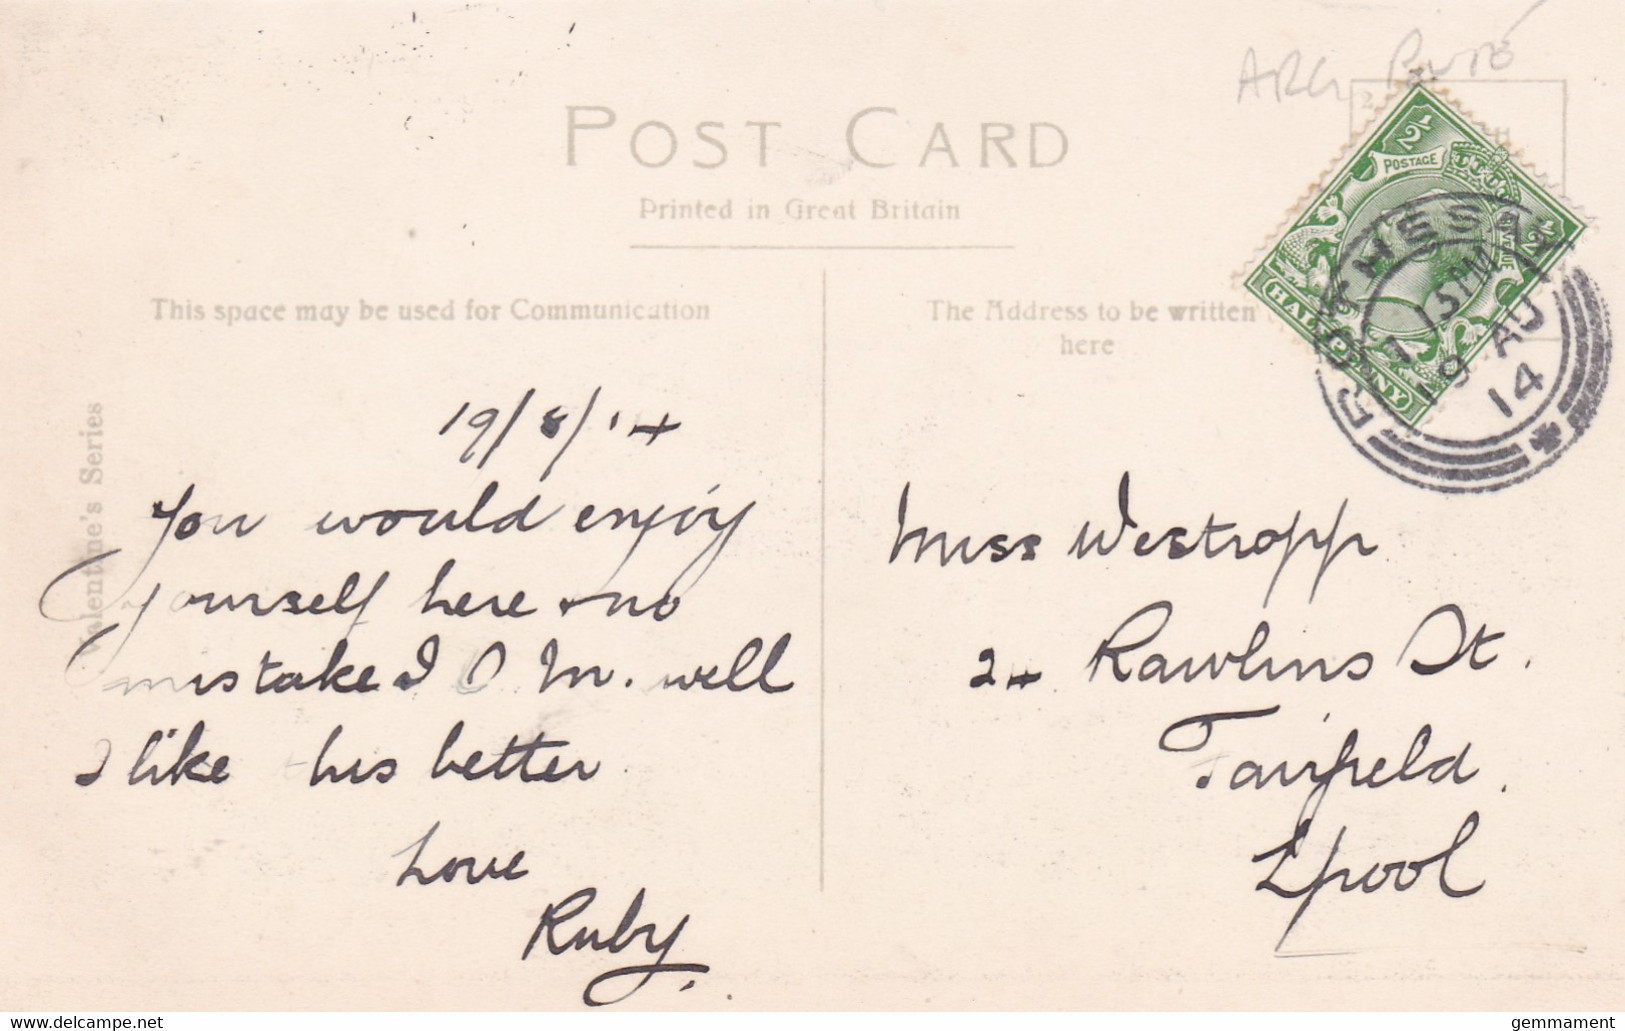 ARG Bute
POST CARD
Printed in Great Britain
This space may be used for Communication
The Address to be written
here
Valentine's Series
½ POSTAGE ½
HALFPENNY
ROTHESAY
1 15 PM
19 AU
14
19/8/14
You would enjoy
yourself here & no
mistake I O M. well
I like this better
Love
Ruby.
Miss Westropp
24 Rawlins St.
Fairfield.
Lpool
www.delcampe.net
gemmament